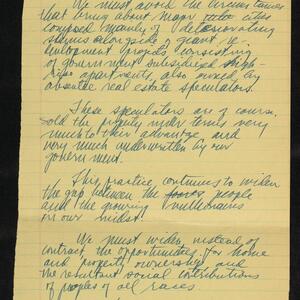 We must avoid the circumstances
that bring about major cities
composed mainly of deteriorating
slums alongside giant re-
development projects consisting
of government subsidized high-
rise apartments, also owned by
absentee real estate speculators.
These speculators are of course,
sold the property under terms very
much to their advantage, and
very much underwritten by our
government.
This practice continues to widen
the gap between the poor people
and the growing
in our midst!
We must widen, instead of
contract the opportunities for home
and property ownership, and
the resultant social contributions
of peoples of all races.